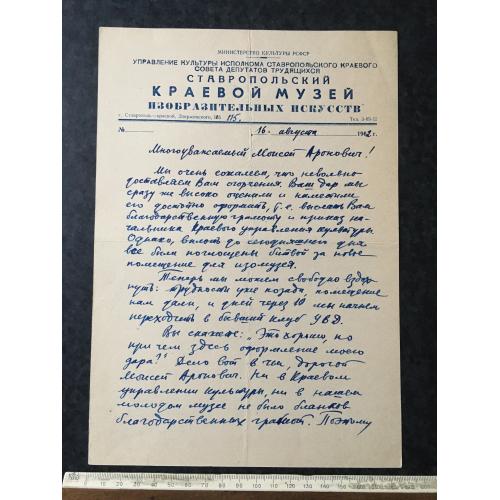 МИНИСТЕРСТВО КУЛЬТУРЫ РСФСР
УПРАВЛЕНИЕ КУЛЬТУРЫ ИСПОЛКОМА СТАВРОПОЛЬСКОГО КРАЕВОГО
СОВЕТА ДЕПУТАТОВ ТРУДЯЩИХСЯ
СТАВРОПОЛЬСКИЙ
КРАЕВОЙ МУЗЕЙ
ИЗОБРАЗИТЕЛЬНЫХ ИСКУССТВ
г. Ставрополь-краевой, Дзержинского, 115. Тел.
№ 16. августа 1962 г.
Многоуважаемый Моисей Аронович!
Мы очень сожалем, что невольно
доставляем Вам огорчения. Ваш дар мы
сразу же высоко оценили и наметили
его достойно оформить, т.е. выслать Вам
благодарственную грамоту и приказ на-
чальника Краевого управления культуры.
Однако, вплоть до сегодняшнего дня
все были поглощены битвой за новое
помещение для изомузея.
Теперь мы можем свободно вздох-
нуть: трудности уже позади, помещение
нам дали, и дней через 10 мы начнем
переходить в бывший клуб УВД.
Вы скажете: „Это хорошо, но
при чем здесь оформление моего
дара?" Дело вот в чем, дорогой
Моисей Аронович. Ни в Краевом
управлении культуры, ни в нашем
молодом музее не было бланков
благодарственных грамот. Поэтому